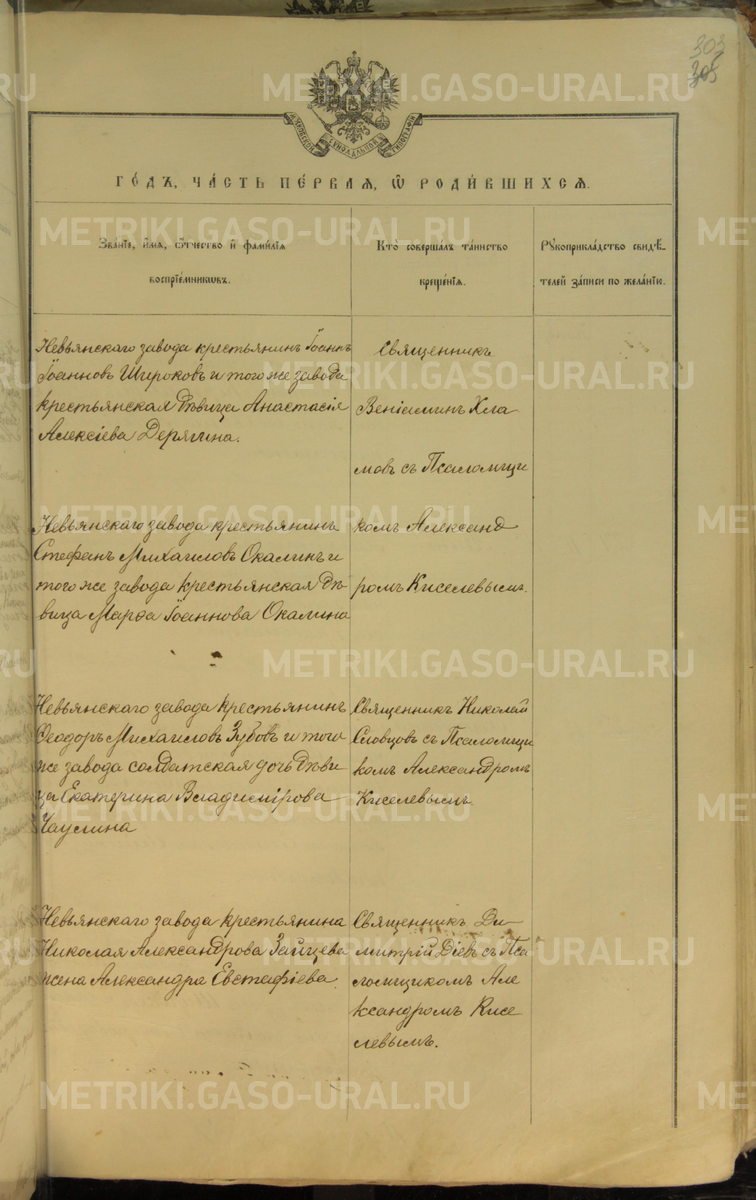 303
305
МОСКОВСКОЙ СѴНОДАЛЬНОЙ ТИПОГРАФІИ
ГО́ДЪ, ЧА́СТЬ ПЕ́РВАЯ, Ѡ҆ РОДИ́ВШИХСЯ.
Зва́ніе, и҆́мя, ѻ҆́тчество и҆ фами́лія
воспріе́мникѡвъ.
Кто̀ соверша́лъ та́инство
креще́нія.
Рꙋкоприкла́дство свидѣ́-
телей за́писи по жела́нію.
Невьянскаго завода крестьянинъ Іоаннъ
Іоанновъ Широковъ и того же завода
крестьянская дѣвица Анастасія
Алексіева Дерягина.
Священникъ
Веніаминъ Хла
мовъ съ Псаломщи
комъ Александ
ромъ Киселевымъ.
Невьянскаго завода крестьянинъ
Стефанъ Михаиловъ Окалинъ и
того же завода крестьянская дѣ-
вица Марѳа Іоаннова Окалина
Невьянскаго завода крестьянинъ
Ѳеодоръ Михаиловъ Зубовъ и того
же завода солдатская дочь дѣви
ца Екатерина Владимірова
Чаулина
Священникъ Николай
Словцовъ съ Псаломщи
комъ Александромъ
Киселевымъ
Невьянскаго завода крестьянина
Николая Александрова Зайцева
жена Александра Евстафіева.
Священникъ Ди-
митрій Діевъ съ Пса
ломщикомъ Але
ксандромъ Кисе
левымъ.
METRIKI.GASO-URAL.RU
METRIKI.GASO-URAL.RU
METRIKI.GASO-URAL.RU
METRIKI.GASO-URAL.RU
METRIKI.GASO-URAL.RU
METRIKI.GASO-URAL.RU
METRIKI.GASO-URAL.RU
METRIKI.GASO-URAL.RU